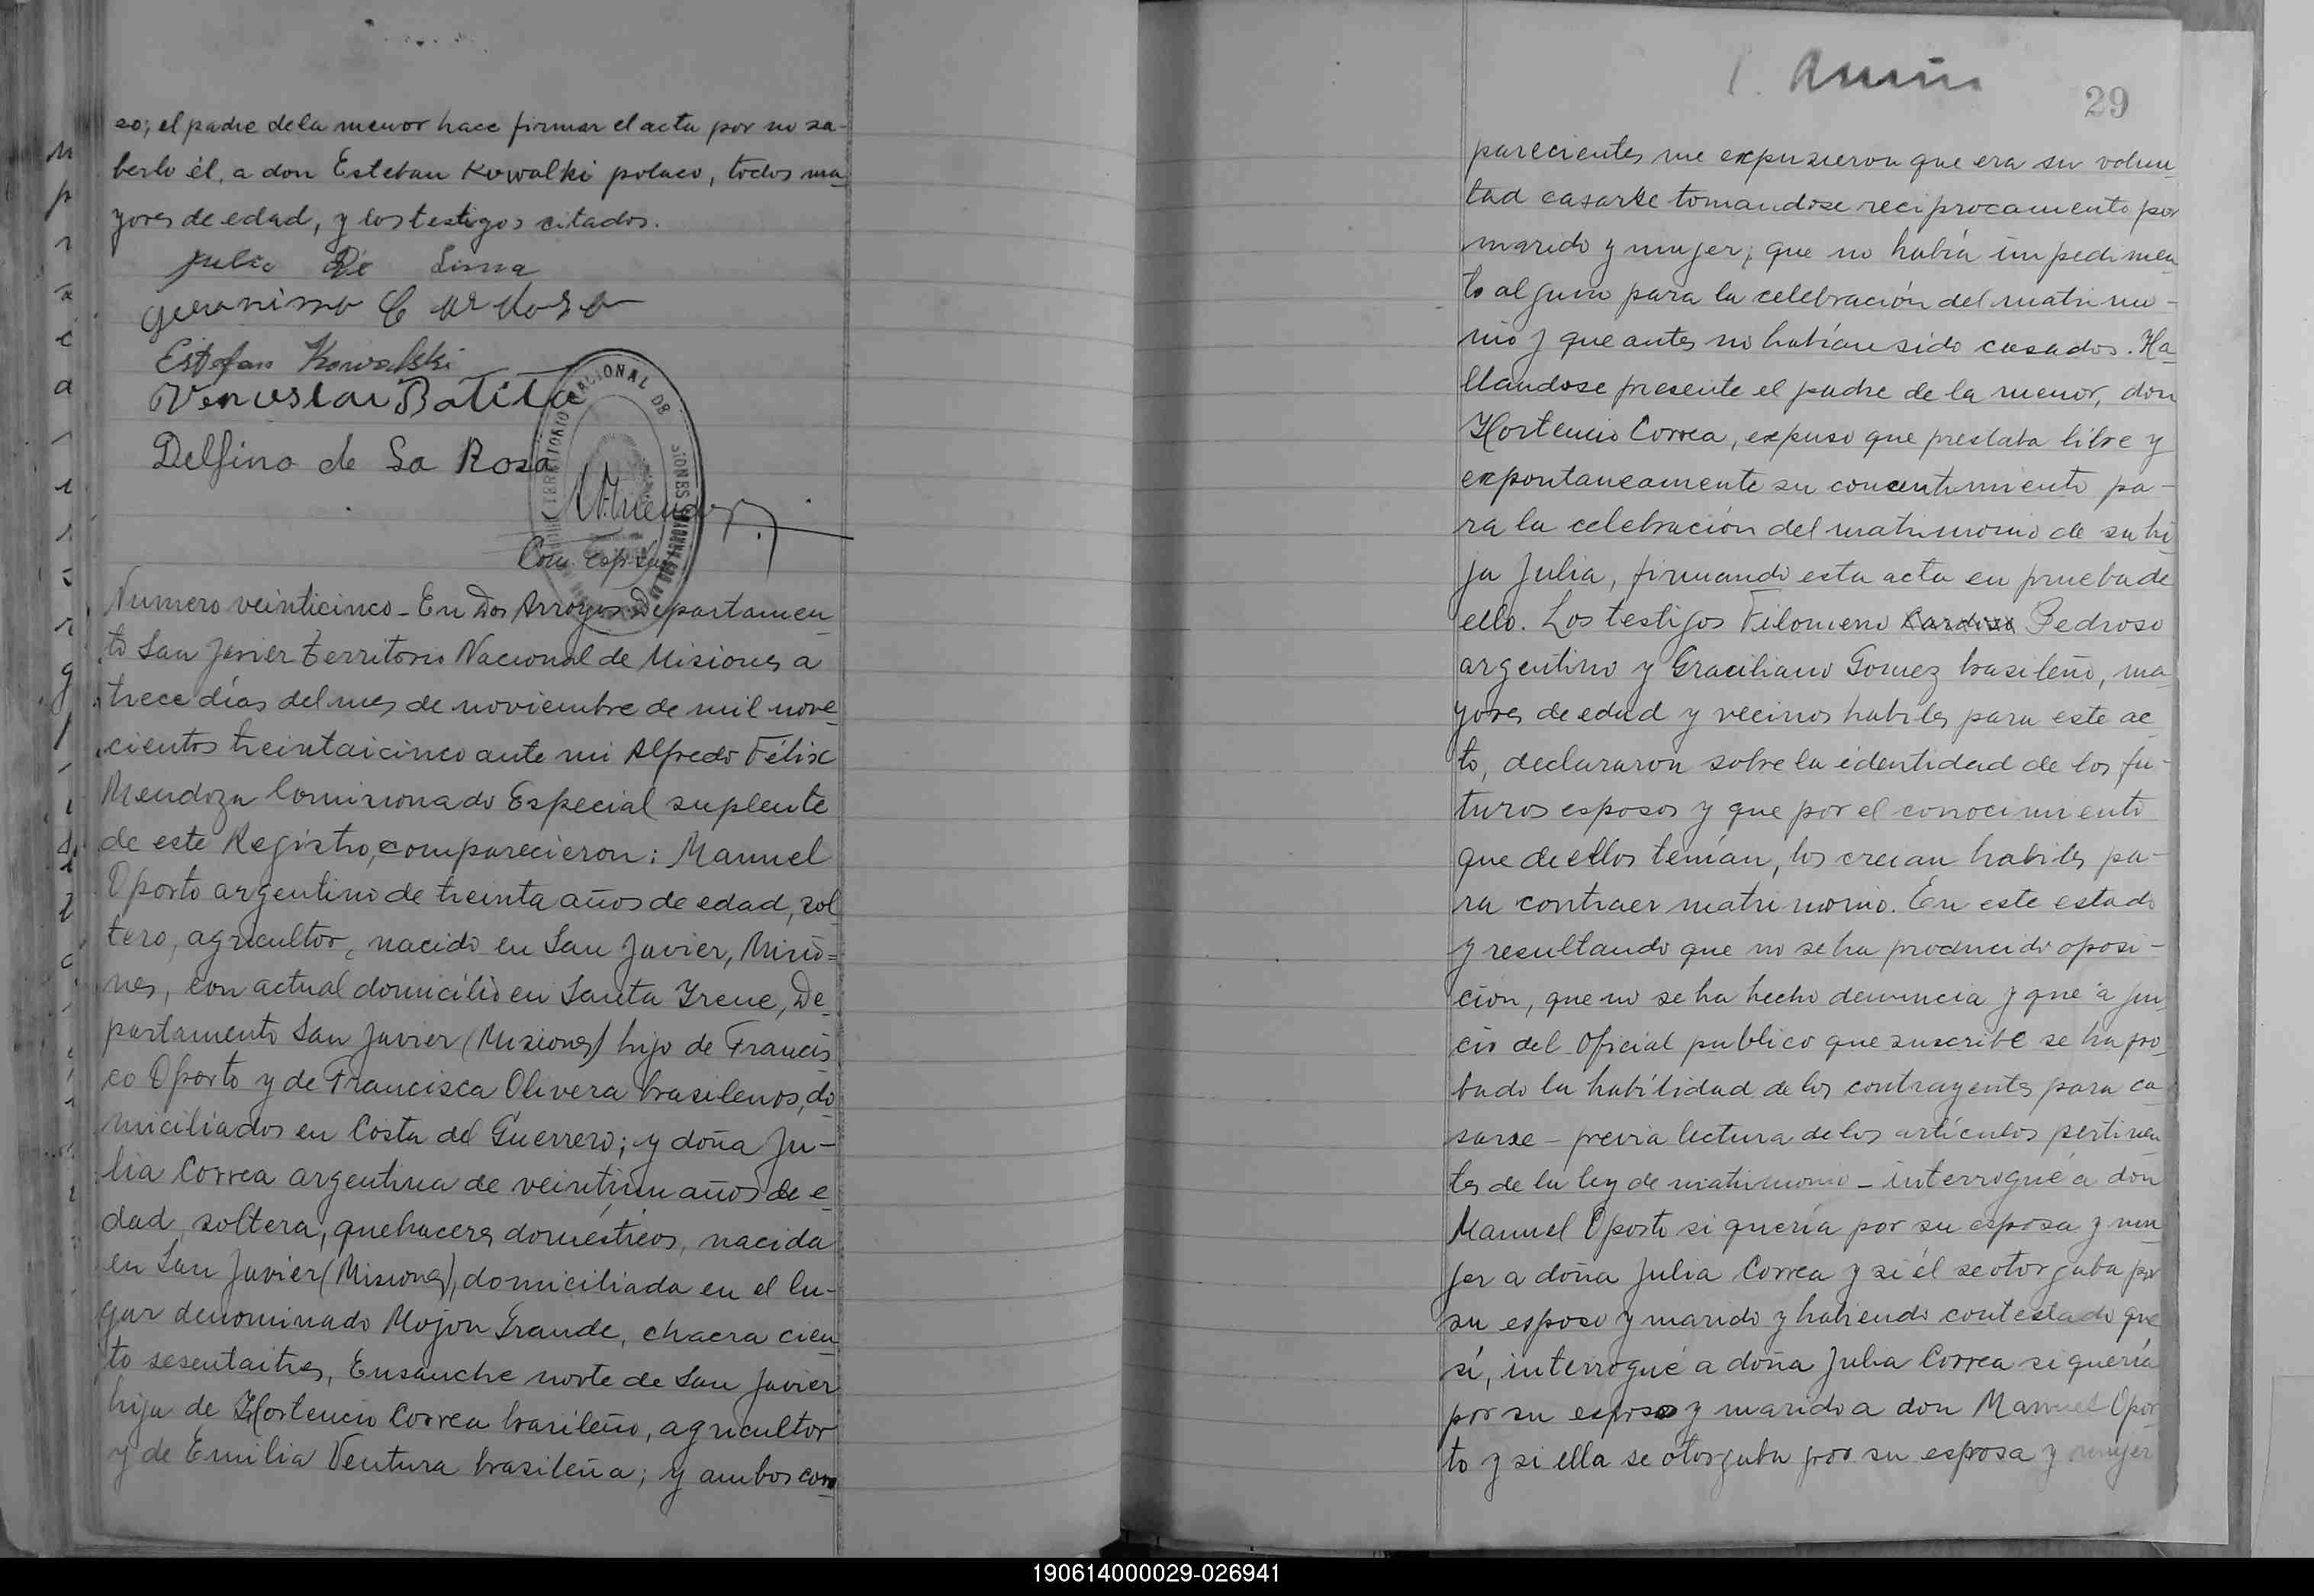 so; el padre de la menor hace firmar el acta por no sa-
berlo él, a don Esteban Kowalki polaco, todos ma-
yores de edad, y los testigos citados.
Julia De Lima
Geronimo Cardoso
Estefan Kowalski
Venceslau Batista
Delfino de La Rosa
Com. esp. sup.
Numero veinticinco - En Dos Arroyos Departamen-
to San Javier territorio Nacional de Misiones a
trece días del mes de noviembre de mil nove-
cientos treintaicinco ante mi Alfredo Félix
Mendoza Comisionado Especial suplente
de este Registro, comparecieron: Manuel
Oporto argentino de treinta años de edad, sol
tero, agricultor, nacido en San Javier, Misio=
nes, con actual domicilio en Santa Irene, De-
partamento San Javier (Misiones) hijo de Francis-
co Oporto y de Francisca Olivera brasilenos, do-
miciliados en Costa del Guerrero; y doña Ju-
lia Correa argentina de veintiun años de e-
dad, soltera, quehaceres domésticos, nacida
en San Javier (Misiones), domiciliada en el lu-
gar denominado Mojon Grande, chacra cien-
to sesentaitres, Ensanche norte de San Javier
hija de Hortencio Correa brasileño, agricultor
y de Emilia Ventura brasileña; y ambos com-
29
parecientes me expusieron que era su volun-
tad casarse tomandose reciprocamente por
marido y mujer; que no había impedimen-
to alguno para la celebración del matrimo-
nio y que antes no habían sido casados. Ha-
llandose presente el padre de la menor, don
Hortencio Correa, expuso que prestaba libre y
expontaneamente su concentimiento pa-
ra la celebración del matrimonio de su hi-
ja Julia, firmando esta acta en prueba de
ello. Los testigos Filomeno Cardoso Pedroso
argentino y Graciliano Gomez brasileño, ma-
yores de edad y vecinos habiles para este ac-
to, declararon sobre la identidad de los fu-
turos esposos y que por el conocimiento
que de ellos tenían, los creian habiles pa-
ra contraer matrimonio. En este estado
y resultando que no se ha producido oposi-
cion, que no se ha hecho denuncia y que a jui-
cio del Oficial publico que suscribe se ha pro-
bado la habilidad de los contrayentes para ca-
sarse - previa lectura de los artículos pertinen-
tes de la ley de matrimonio - interrogué a don
Manuel Oporto si quería por su esposa y mu-
jer a doña Julia Correa y si él se otorgaba por
su esposo y marido y habiendo contestado que
sí, interrogué a doña Julia Correa si quería
por su esposo y marido a don Manuel Opor-
to y si ella se otorgaba por su esposa y mujer
190614000029-026941